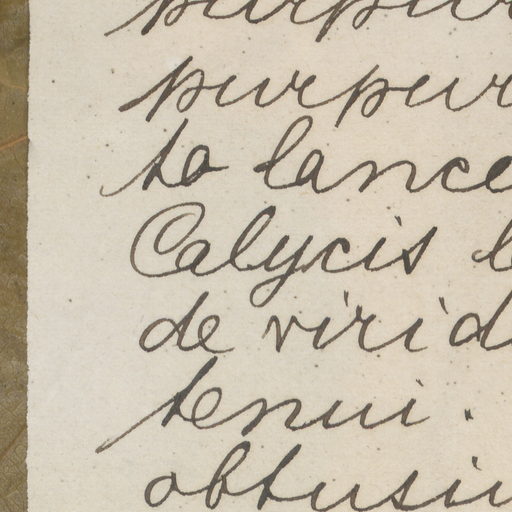 purpur
purpur
to lance
Calycis l
de virid
tenui.
obtusiu